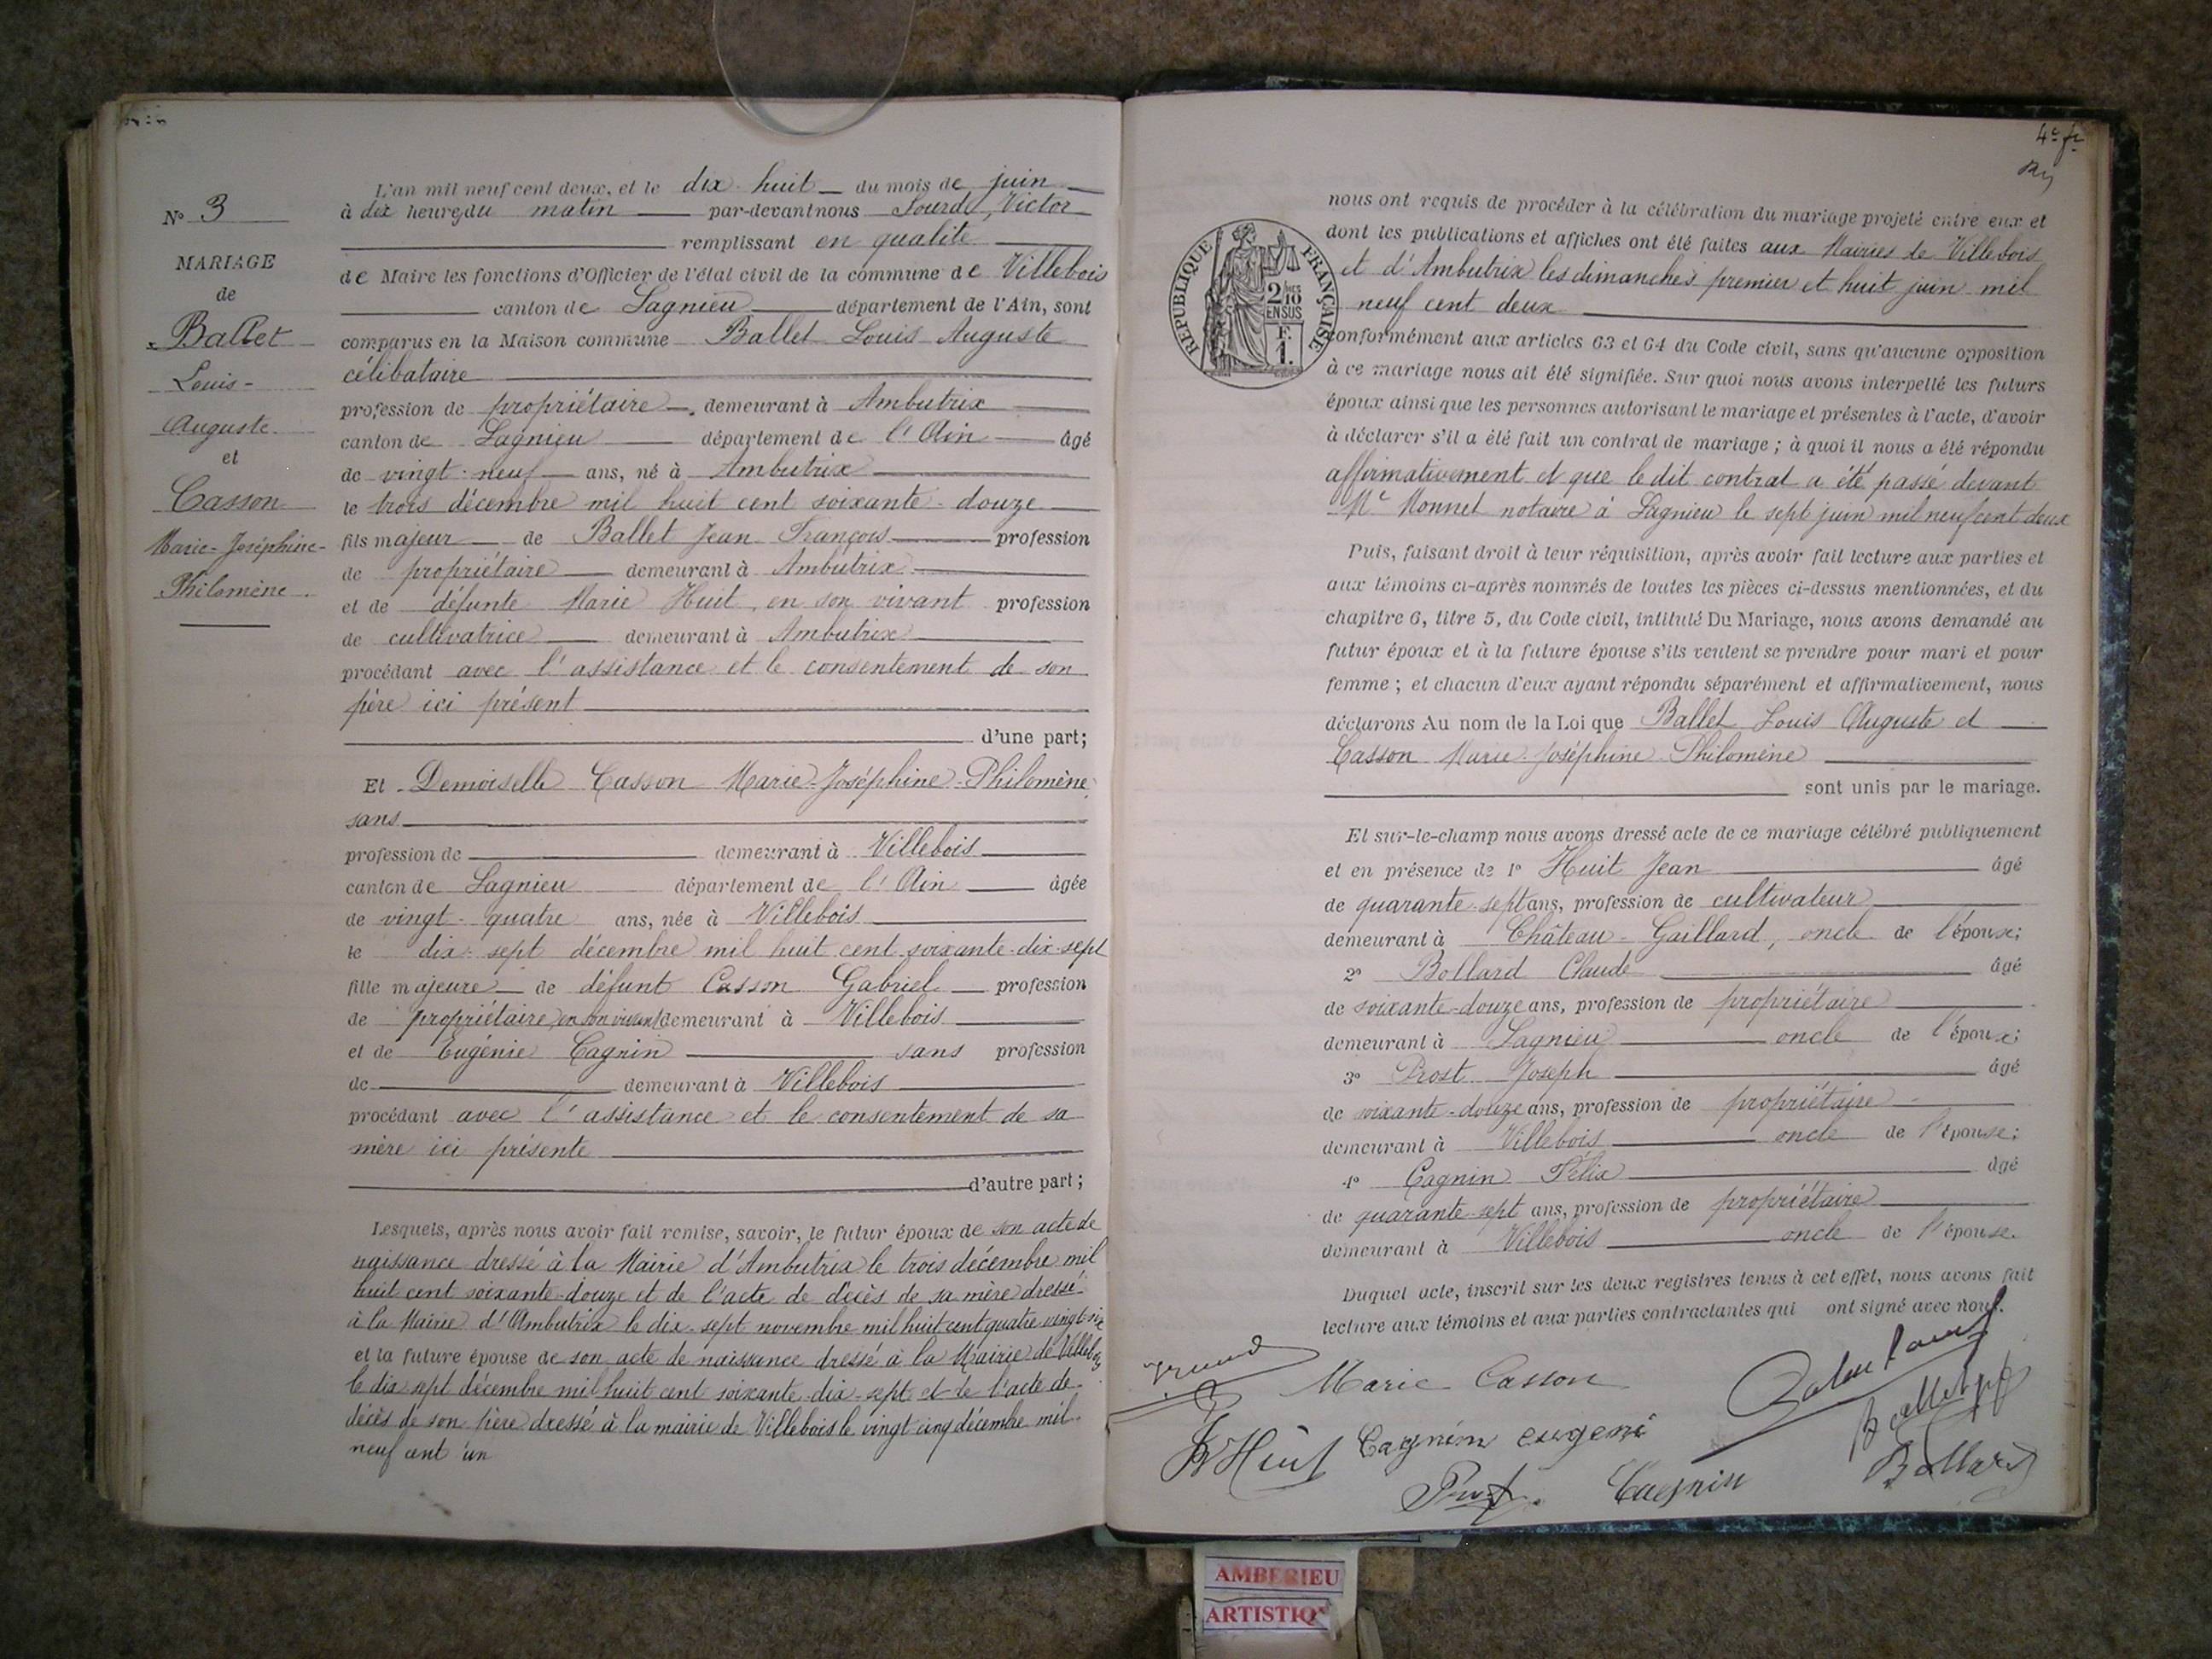 N° 3
MARIAGE
de
Ballet
Louis-
Auguste
et
Casson
Marie-Joséphine-
Philomène.
L'an mil neuf cent deux, et le dix huit du mois de juin
à dix heures du matin par-devant nous Lourdel, Victor
remplissant en qualité
de Maire les fonctions d'Officier de l'état civil de la commune de Villebois
canton de Lagnieu département de l'Ain, sont
comparus en la Maison commune Ballet Louis Auguste
célibataire
profession de propriétaire, demeurant à Ambutrix
canton de Lagnieu département de l'Ain âgé
de vingt-neuf ans, né à Ambutrix
le trois décembre mil huit cent soixante-douze
fils majeur de Ballet Jean François profession
de propriétaire demeurant à Ambutrix
et de défunte Marie Huit, en son vivant profession
de cultivatrice demeurant à Ambutrix
procédant avec l'assistance et le consentement de son
père ici présent
d'une part;
Et Demoiselle Casson Marie-Joséphine-Philomène
sans
profession de demeurant à Villebois
canton de Lagnieu département de l'Ain âgée
de vingt-quatre ans, née à Villebois
le dix-sept décembre mil huit cent soixante-dix-sept
fille majeure de défunt Casson Gabriel profession
de propriétaire, en son vivant, demeurant à Villebois
et de Eugénie Cagnin sans profession
de demeurant à Villebois
procédant avec l'assistance et le consentement de sa
mère ici présente
d'autre part;
Lesquels, après nous avoir fait remise, savoir, le futur époux de son acte de
naissance dressé à la Mairie d'Ambutrix le trois décembre mil
huit cent soixante-douze et de l'acte de décès de sa mère dressé
à la Mairie d'Ambutrix le dix-sept novembre mil huit cent quatre vingt-six
et la future épouse de son acte de naissance dressé à la Mairie de Villebois
le dix sept décembre mil huit cent soixante-dix-sept et de l'acte de
décès de son père dressé à la mairie de Villebois le vingt cinq décembre mil
neuf cent un
4e
RÉPUBLIQUE FRANÇAISE
2 10
EN SUS
F.
1.
nous ont requis de procéder à la célébration du mariage projeté entre eux et
dont les publications et affiches ont été faites aux Mairies de Villebois
et d'Ambutrix les dimanches premier et huit juin mil
neuf cent deux
conformément aux articles 63 et 64 du Code civil, sans qu'aucune opposition
à ce mariage nous ait été signifiée. Sur quoi nous avons interpellé les futurs
époux ainsi que les personnes autorisant le mariage et présentes à l'acte, d'avoir
à déclarer s'il a été fait un contrat de mariage; à quoi il nous a été répondu
affirmativement et que le dit contrat a été passé devant
Me Monnet notaire à Lagnieu le sept juin mil neuf cent deux
Puis, faisant droit à leur réquisition, après avoir fait lecture aux parties et
aux témoins ci-après nommés de toutes les pièces ci-dessus mentionnées, et du
chapitre 6, titre 5, du Code civil, intitulé Du Mariage, nous avons demandé au
futur époux et à la future épouse s'ils veulent se prendre pour mari et pour
femme; et chacun d'eux ayant répondu séparément et affirmativement, nous
déclarons Au nom de la Loi que Ballet Louis Auguste et
Casson Marie-Joséphine-Philomène
sont unis par le mariage.
Et sur-le-champ nous avons dressé acte de ce mariage célébré publiquement
et en présence de 1° Huit Jean âgé
de quarante-sept ans, profession de cultivateur
demeurant à Château-Gaillard, oncle de l'époux;
2° Bollard Claude âgé
de soixante-douze ans, profession de propriétaire
demeurant à Lagnieu oncle de l'époux;
3° Prost Joseph âgé
de soixante-douze ans, profession de propriétaire
demeurant à Villebois oncle de l'épouse;
4° Cagnin Félix âgé
de quarante-sept ans, profession de propriétaire
demeurant à Villebois oncle de l'épouse.
Duquel acte, inscrit sur les deux registres tenus à cet effet, nous avons fait
lecture aux témoins et aux parties contractantes qui ont signé avec nous.
Marie Casson
Huit Cagnin eugeni
Ballet
Prost Cagnin Bollard
AMBERIEU
ARTISTIQ